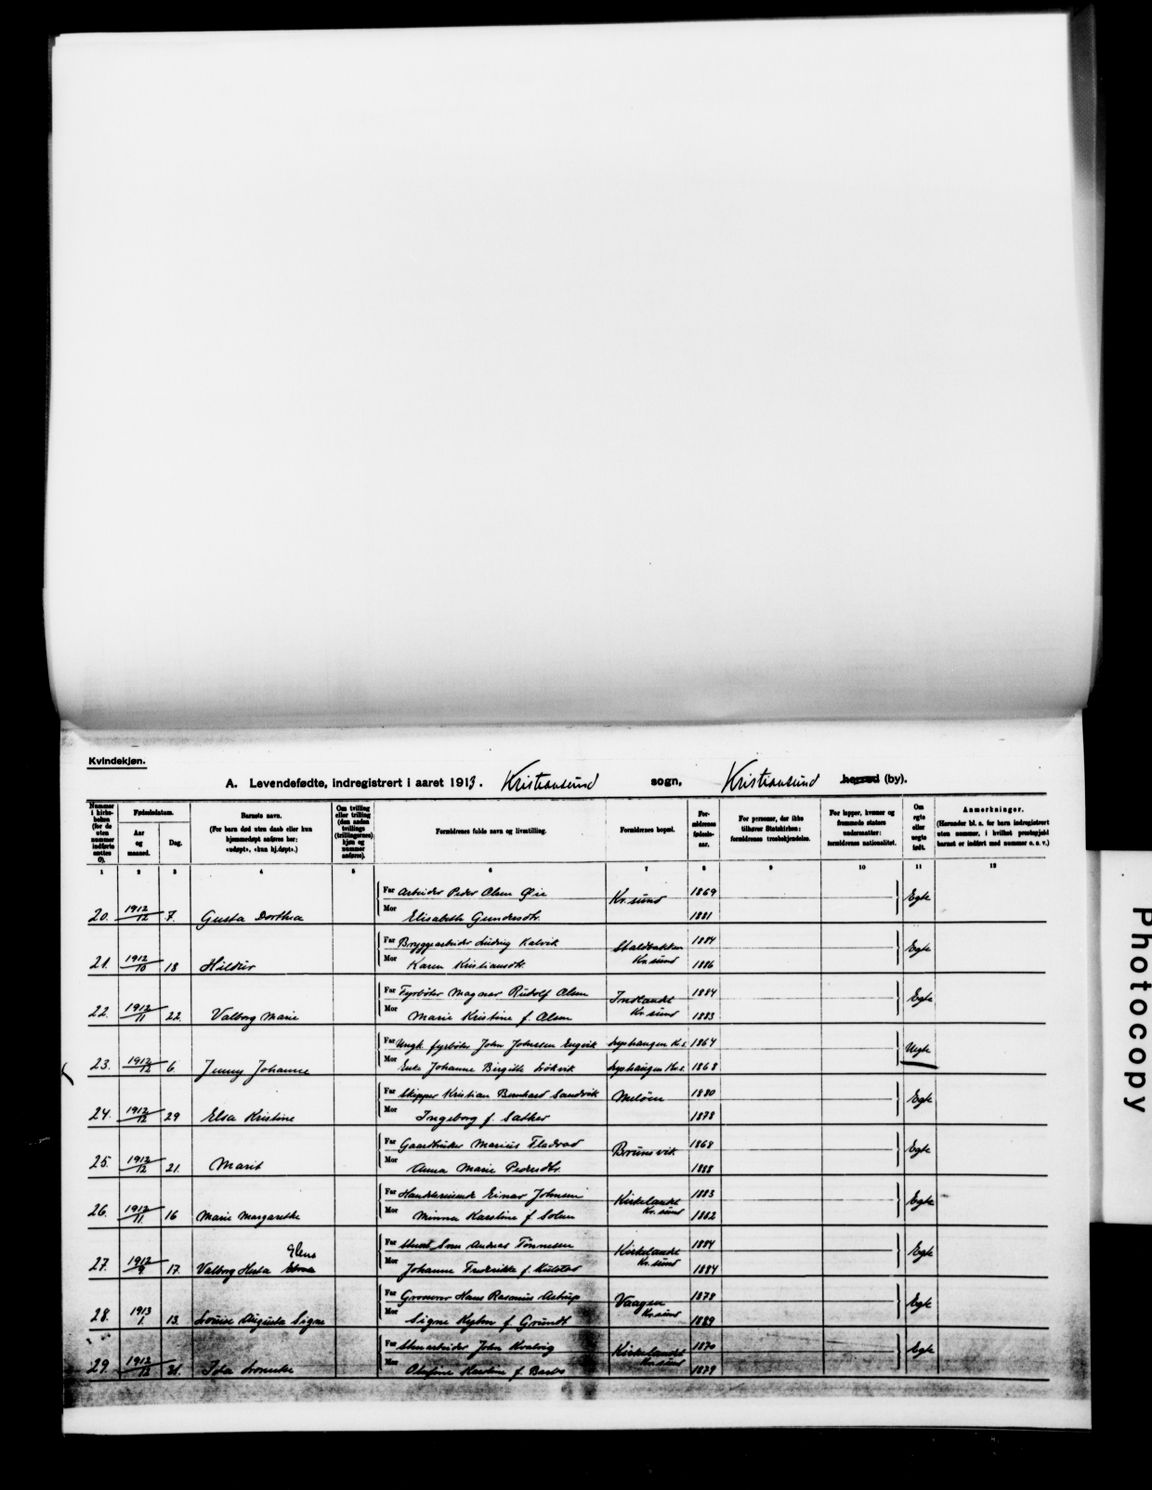 Kvindekjøn.
A. Levendefødte, indregistrert i aaret 1913. Kristiansund sogn, Kristiansund herred (by).
Nummer i kirkeboken (for de uten nummer indførte sættes 0).
Fødselsdatum.
Aar og maaned.
Dag.
Barnets navn.
(For barn død uten daab eller kun hjemmedøpt anføres her: «udøpt», «kun hj.døpt».)
Om tvilling eller trilling (den anden tvillings (trillingernes) kjøn og nummer anføres).
Forældrenes fulde navn og livsstilling.
Forældrenes bopæl.
Forældrenes fødselsaar.
For personer, der ikke tilhører Statskirken: forældrenes trosbekjendelse.
For lapper, kvæner og fremmede staters undersaatter: forældrenes nationalitet.
Om egte eller uegte født.
Anmerkninger.
(Herunder bl. a. for barn indregistrert uten nummer, i hvilket prestegjeld barnet er indført med nummer o. s. v.)
1 2 3 4 5 6 7 8 9 10 11 12
Far Arbeider Peder Olsen Øie Kr.sund 1869 Egte
20. 1912/12 7. Gusta Dorthea Mor Elisabeth Gundersdtr. 1881
Far Bryggearbeider Ludvig Kalvik Staldbakken 1884 Egte
21. 1912/10 18 Hildur Mor Karen Kristiansdtr. Kr.sund 1886
Far Fyrbøter Magnar Rudolf Olsen Indlandet 1884 Egte
22. 1912/11 22. Valborg Marie Mor Marie Kristine f. Olsen Kr.sund 1883
Far Ungk. fyrbøter John Johnsen Engvik 1864 Uegte
23. 1912/12 6. Jenny Johanne Mor Enke Johanne Birgitte 1868
Far Skipper Kristian Bernhard Sandvik Meløen 1880 Egte
24. 1912/12 29 Elsa Kristine Mor Ingeborg f. Sæther 1878
Far Gaardbruker Marius Fladvad Brunsvik 1868 Egte
25. 1912/12 21. Marit Mor Anna Marie Pedersdtr. 1888
Far Einar Johnsen Kirkelandet 1883 Egte
26. 1912/11. 16 Marie Margarethe Mor Minna Karstine f. Solem Kr.sund 1882
Far Andreas Tønnesen Kirkelandet 1884 Egte
27. 1912/9 17. Valborg Herta Mor Johanne Fredrikke f. Kulstad Kr.sund 1884
Far Hans Rasmus Astrup Vaagen 1878 Egte
28. 1913/1. 13. Louise Augusta Signe Mor Signe f. Grundt Kr.sund 1889
Far Stenarbeider John Kvalvig Kirkelandet 1870 Egte
29. 1912/12 31. Mor Karoline f. Kr.sund 1879
Photocopy